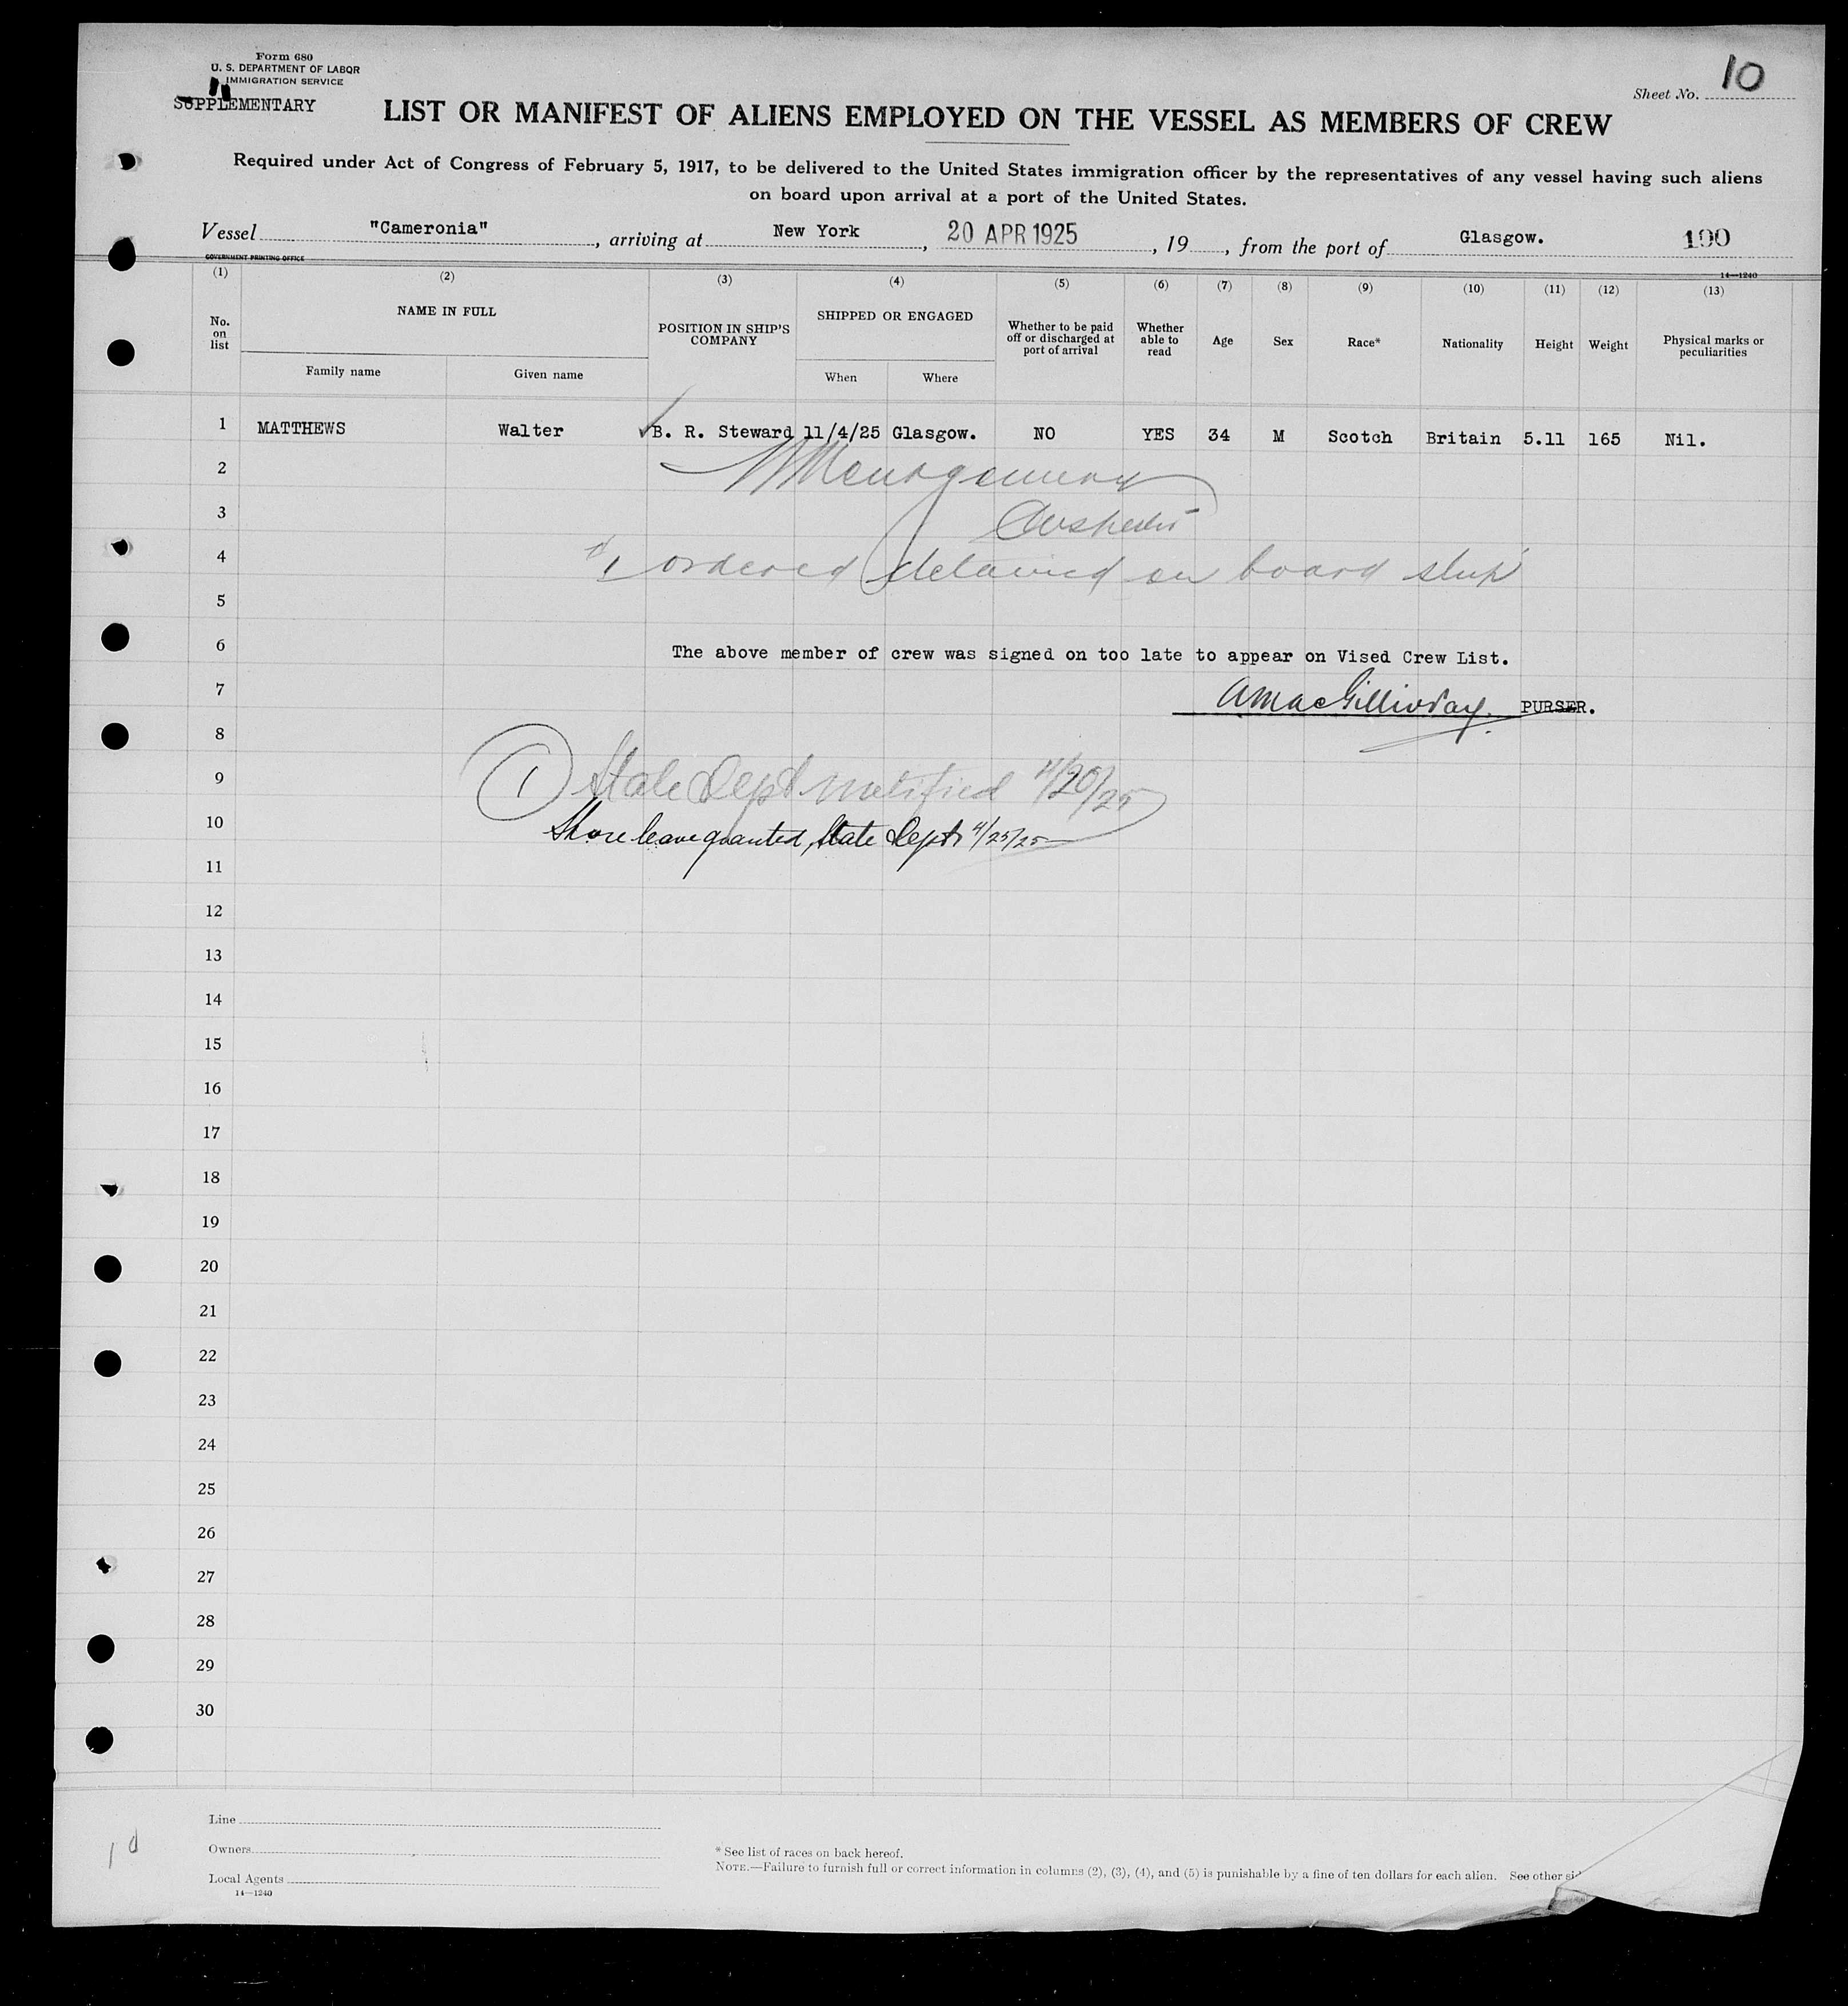 Form 680
U. S. DEPARTMENT OF LABOR
IMMIGRATION SERVICE
SUPPLEMENTARY
Sheet No. 10
LIST OR MANIFEST OF ALIENS EMPLOYED ON THE VESSEL AS MEMBERS OF CREW
Required under Act of Congress of February 5, 1917, to be delivered to the United States immigration officer by the representatives of any vessel having such aliens
on board upon arrival at a port of the United States.
Vessel "Cameronia", arriving at New York, 20 APR 1925, 19, from the port of Glasgow. 190
GOVERNMENT PRINTING OFFICE
14—1240
(1) (2) (3) (4) (5) (6) (7) (8) (9) (10) (11) (12) (13)
No. on list NAME IN FULL POSITION IN SHIP'S COMPANY SHIPPED OR ENGAGED Whether to be paid off or discharged at port of arrival Whether able to read Age Sex Race* Nationality Height Weight Physical marks or peculiarities
Family name Given name When Where
1 MATTHEWS Walter B. R. Steward 11/4/25 Glasgow. NO YES 34 M Scotch Britain 5.11 165 Nil.
2 Montgomery
3
4 1 ordered detained on board ship
5
6 The above member of crew was signed on too late to appear on Vised Crew List.
7 A MacGillivray. PURSER.
8
9 1 State Dept notified 4/20/25
10 Shore leave granted, State Dept 4/25/25
11
12
13
14
15
16
17
18
19
20
21
22
23
24
25
26
27
28
29
30
Line
Owners
Local Agents
14—1240
* See list of races on back hereof.
NOTE.—Failure to furnish full or correct information in columns (2), (3), (4), and (5) is punishable by a fine of ten dollars for each alien. See other